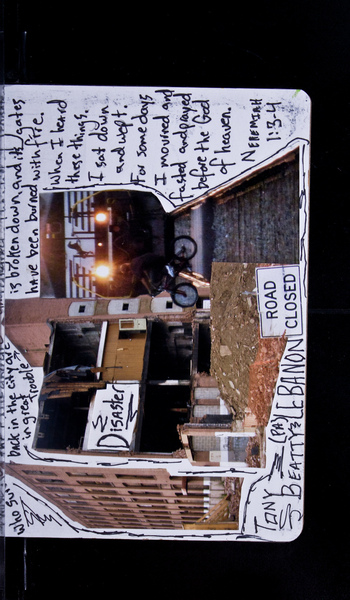 who su
back in the city are
in great trouble
is broken down and its gates
have been burned with fire.
When I heard
these things,
I sat down
and wept.
For some days
I mourned and
fasted and prayed
before the God
of heaven.
NEHEMIAH
1:3-4
DISASTER
ROAD
CLOSED
TONY
BEATTY
(PA)
LEBANON